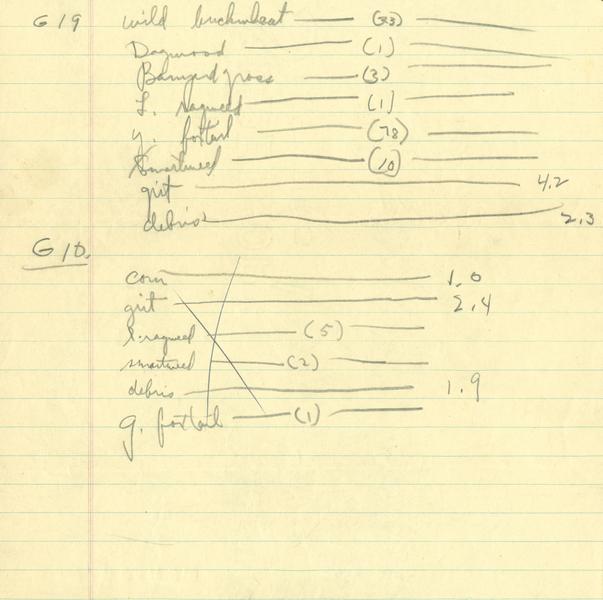 G 19 wild buckwheat (33)
Dogwood (1)
Barnyard grass (3)
L. ragweed (1)
y. foxtail (78)
Smartweed (10)
grit 4.2
debris 2.3
G 10.
corn 1.0
grit 2.4
l. ragweed (5)
smartweed (2)
debris 1.9
g. foxtail (1)